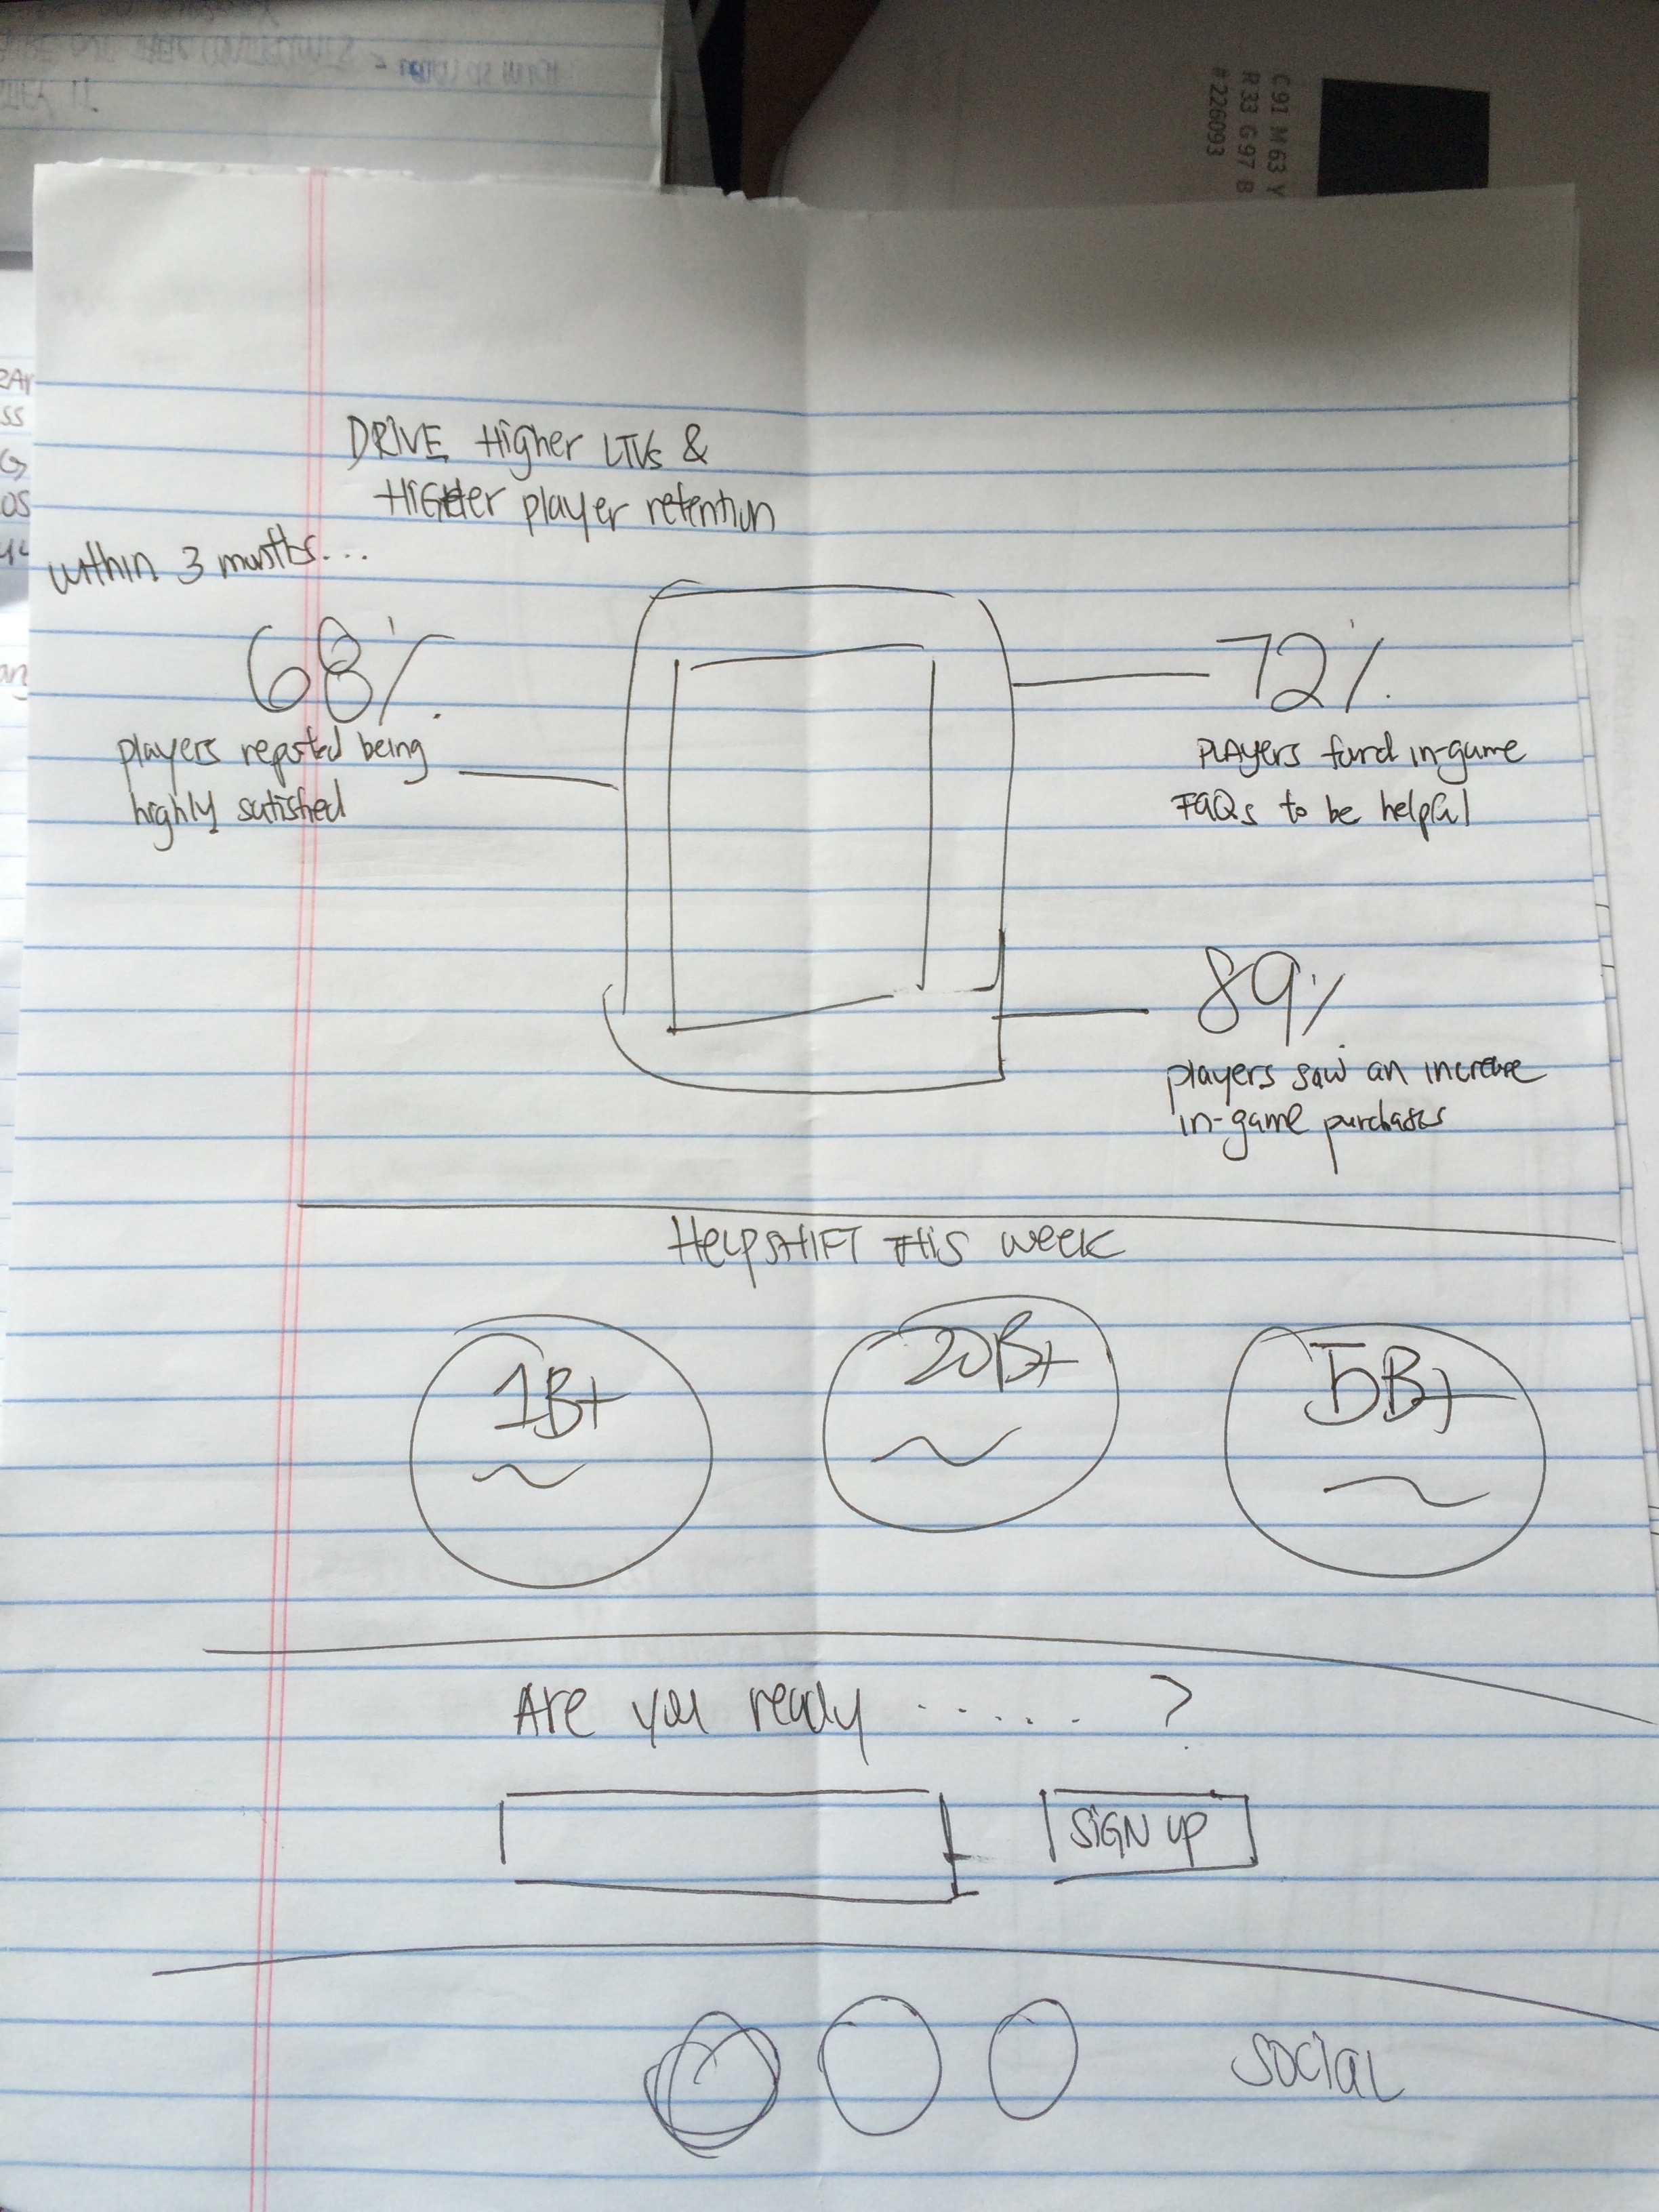 C 91 M 63 Y
R 33 G 97 B
# 226093
DRIVE Higher LTVs &
HiGHer player retention
within 3 months...
68%
players reported being
highly satisfied
72%
PLAYers found in-game
FAQs to be helpful
89%
players saw an increase
in-game purchases
HelpSHIFT THis week
1B+
20B+
5B+
Are you ready ...... ?
SiGN UP
SOCIAL